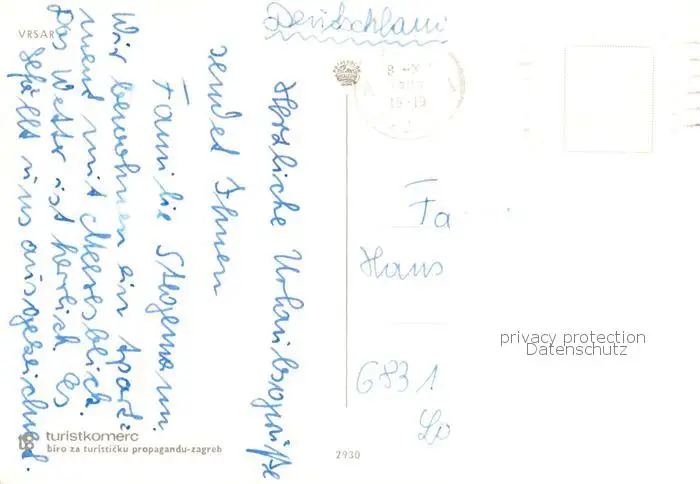 VRSAR
Deutschland
Herzliche Urlaubsgrüße
sendet Ihnen
Familie Stegemann.
Wir bewohnen ein Apart-
ment mit Meeresblick.
Das Wetter ist herrlich. Es
gefällt uns ausgezeichnet.
Fa
Hans
6831
Lo
privacy protection
Datenschutz
turistkomerc
biro za turističku propagandu-zagreb
2930